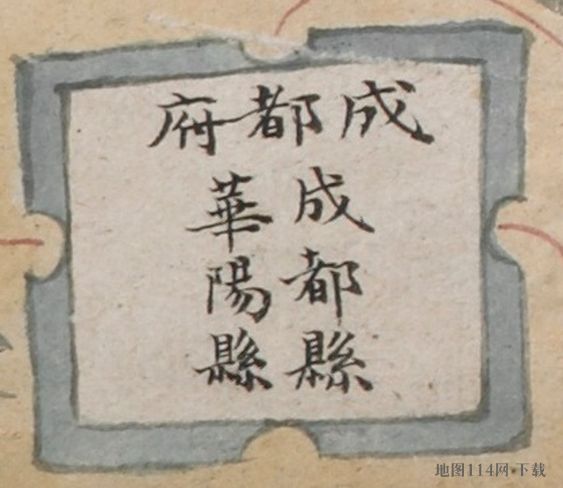 成都府
成都縣
華陽縣
地图114网·下载